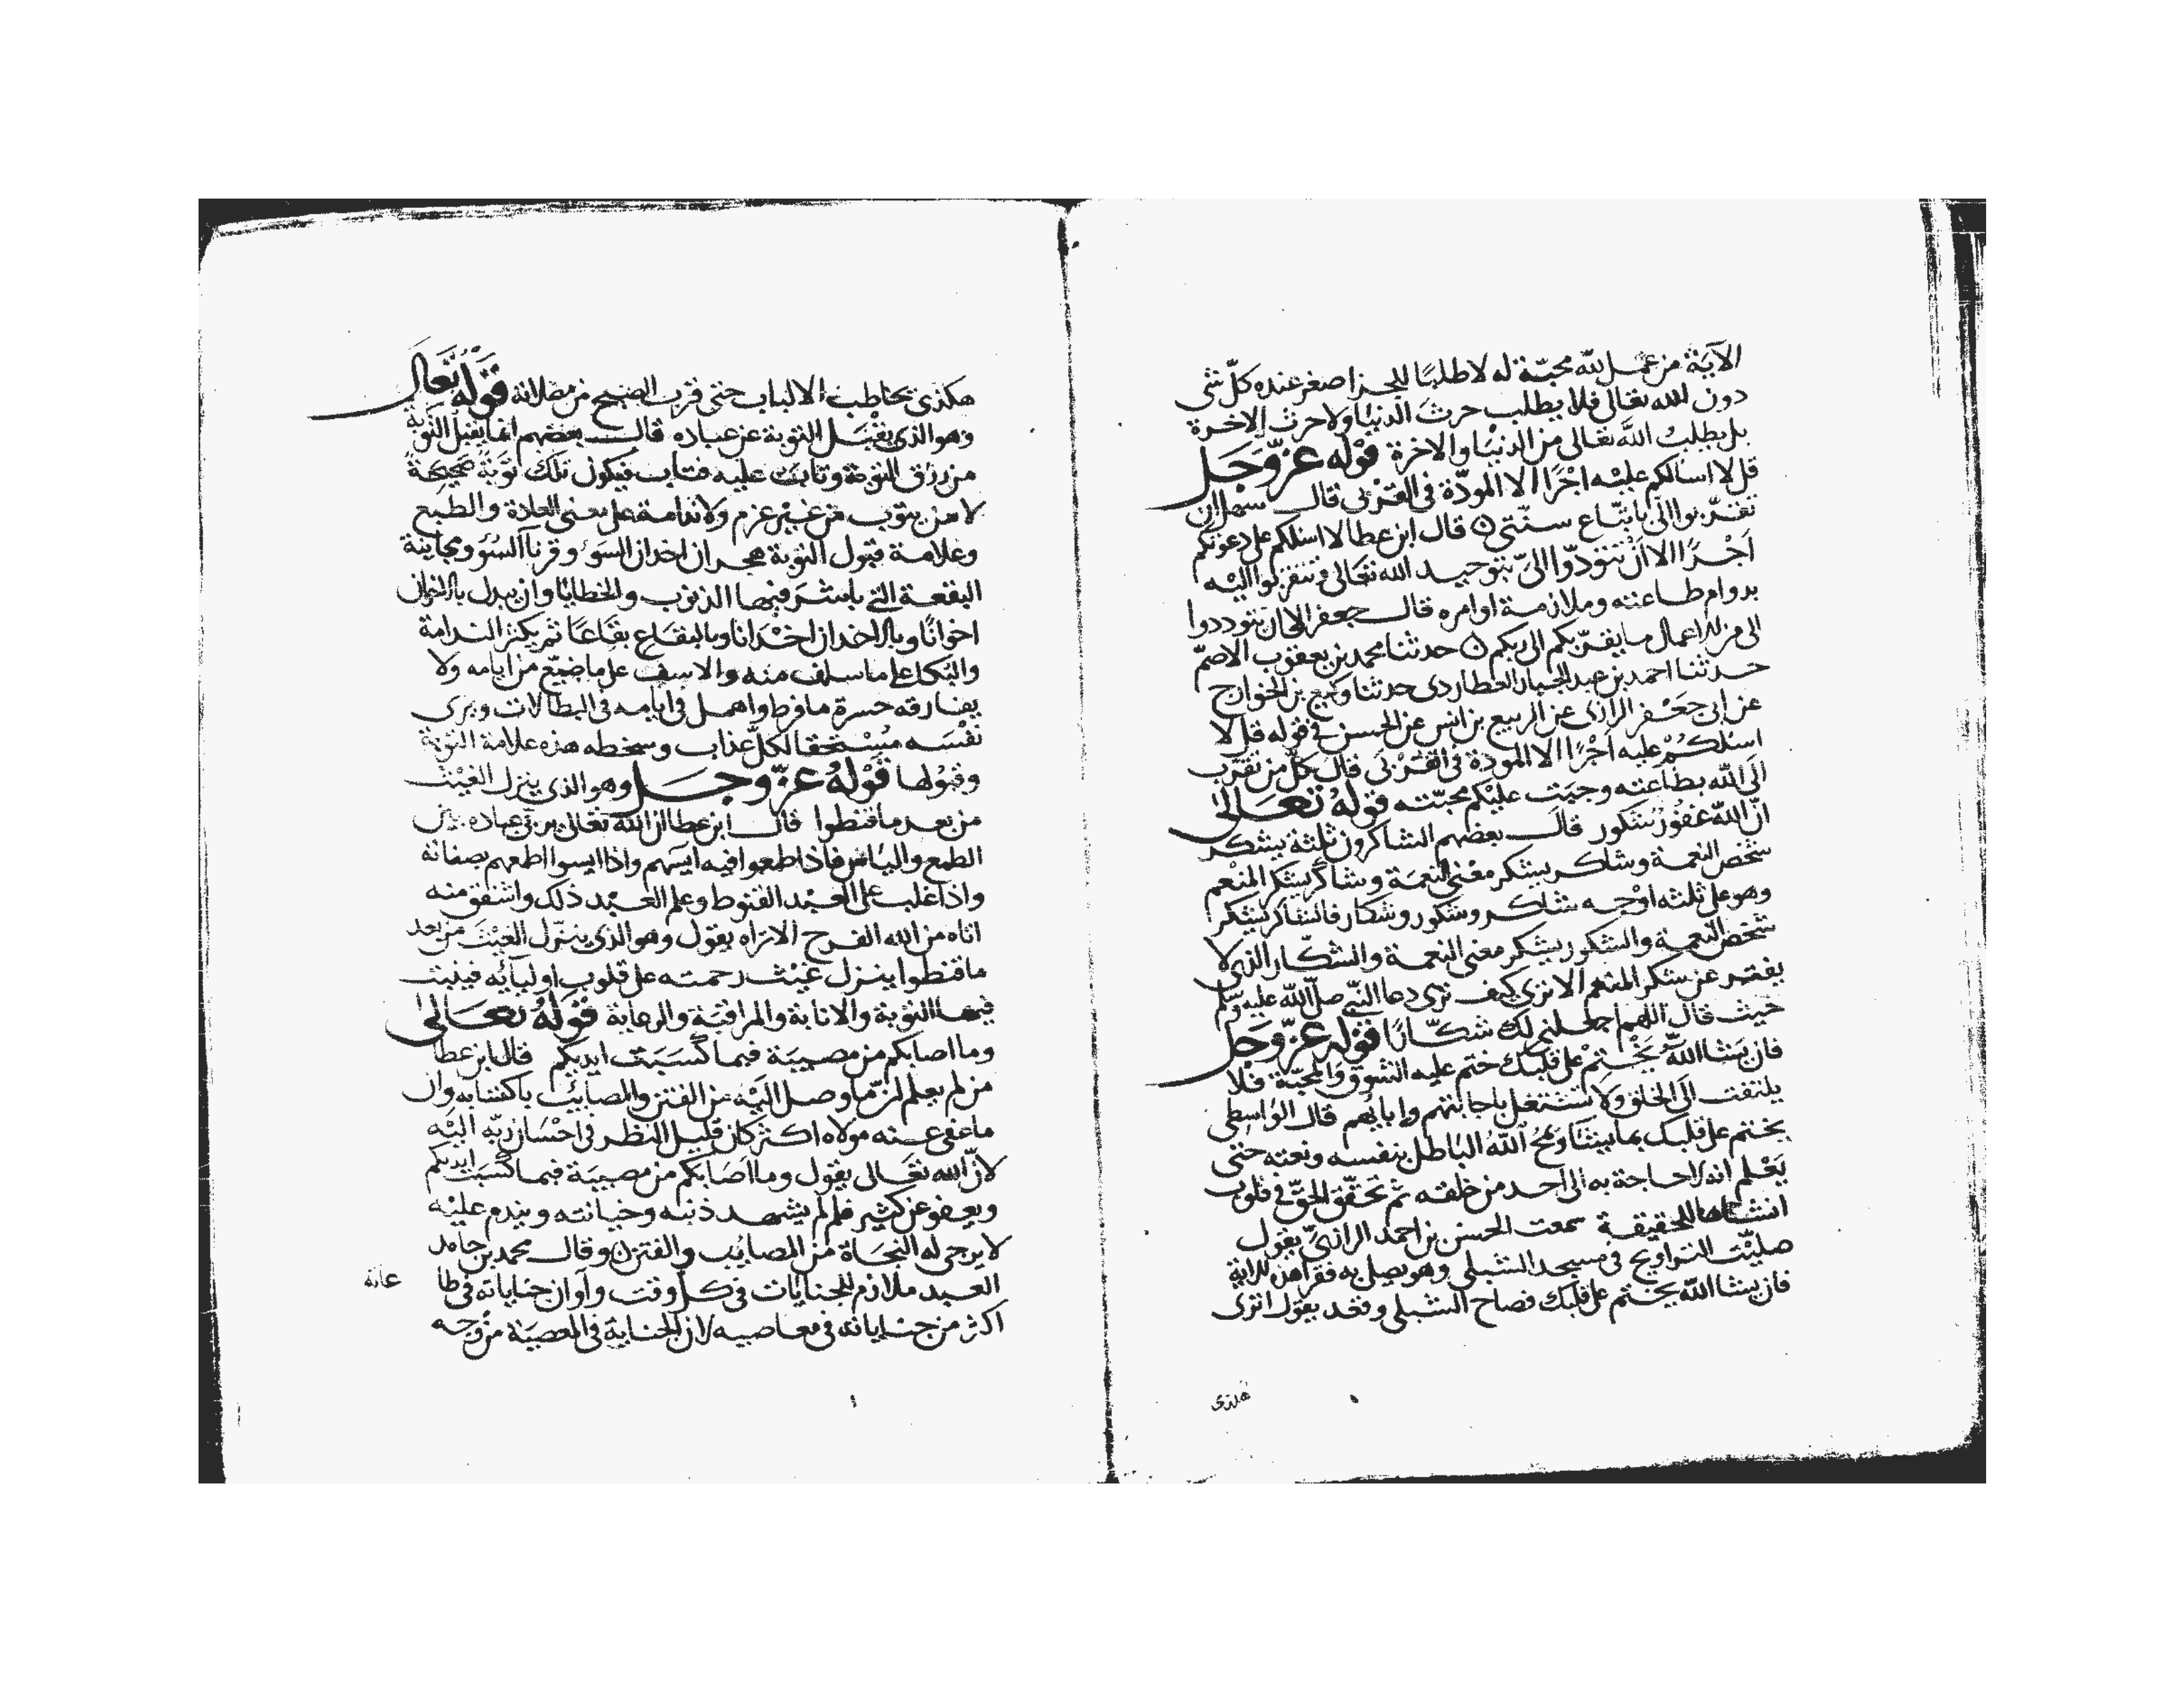 الآية من عمل لله محبّة له لا طلبًا للجزا صغر عنده كلّ شي
دون الله تعالى فلا يطلب حرث الدنيا ولا حرث الاخرة
بل يطلب الله تعالى من الدنيا والاخرة قوله عزّ وجل
قل لا اسالكم عليه اجرًا الا المودّة في القربى قال سهل ان
تقرّبوا الىّ باتباع سنّتى قال ابن عطا لا اسلكم على دعوتكم
اجرًا الا ان تتودّوا الىّ بتوحيد الله تعالى وتتقربوا اليه
بدوام طاعته وملازمة اوامره قال جعفر الا ان تتوددوا
الى من الاعمال ما يقرّبكم الى ربكم حدثنا محمد بن يعقوب الاصمّ
حدثنا احمد بن عبد الجبار العطاردى حدثنا وكيع بن الجراح
عن ابى جعفر الرازى عن الربيع بن انس عن الحسن في قوله قل لا
اسلكم عليه اجرًا الا المودة في القربى قال كلّ من تقرّب
الى الله بطاعته وجبت عليكم محبّته قوله تعالى
انّ الله غفور شكور قال بعضهم الشاكرون ثلثة يشكر
شخص النعمة وشاكر يشكر معنى النعمة وشاكر يشكر المنعم
وهو على ثلثه اوجه شاكر وشكور وشكار فالشاكر يشكر
شخص النعمة والشكور يشكر معنى النعمة والشكّار الذى لا
يفتر عن شكر المنعم الا ترى كيف ترى دعا النبى صلّى الله عليه وسلم
حيث قال اللهم اجعلنى لك شكّارًا قوله عزّ وجل
فان يشا الله يختم على قلبك ختم عليه الشوق والمحبّة فلا
يلتفت الى الخلق ولا تشتغل باجابتهم وابائهم قال الواسطى
يختم على قلبك بما يشا ويمح الله الباطل بنفسه ونعته حتى
يعلم انه لا حاجة به الى احد من خلقه ثم تحقّق الحقّ في قلوب
للحقيقة سمعت الحسن بن احمد الرازىّ يقول
صليّت التراويح في مسجد الشبلى وهو يصلى به فقرا هذه الاية
فان يشا الله يختم على قلبك فصاح الشبلى وقعد يقول اترى
هكذى
هكذى يخاطب الالباب حتى قرب الصبح من قوله تعالى
وهو الذى يقبل التوبة عن عباده قال بعضهم انما يقبل التوبة
من رزق التوبة وتابت عليه فتاب فيكون تلك توبةً صحيحةً
لا من يتوب من غير عزم ولا ندامة على معنى العادة والطبع
وعلامة قبول التوبة هجران اخدان السوء وقرنآ السوء ومجانبة
البقعة التي باشر فيها الذنوب والخطايا وان يبدل بالاخوان
اخوانًا وبالاخدان اخدانا وبالبقاع بقاعًا ثم يكثر الندامة
والبكا على ما سلف منه والاسف على ما ضيّع من ايامه ولا
يفارقه حسرة ما فرط واهمل في ايامه في البطالات ويرى
نفسه مستحقا لكلّ عذاب وسخطه هذه علامة التوبة
وقبولها قوله عزّ وجل وهو الذى ينزل الغيث
من بعد ما قنطوا قال ابن عطا ان الله تعالى يربّى عباده بين
الطمع والياس فاذا طمعوا فيه ايسهم واذا ايسوا اطمعهم بصفاته
واذا غلب على العبد القنوط وعلم العبد ذلك واشفق منه
اتاه من الله الفرج الا تراه يقول وهو الذى ينزل الغيث من بعد
ما قنطوا ينزل غيث رحمته على قلوب اوليائه فينبت
فيها التوبة والانابة والمراقبة والرعاية قوله تعالى
وما اصابكم من مصيبة فيما كسبت ايديكم قال ابن عطا
من لم يعلم انّ ما وصل اليه من الفتن والمصايب باكتسابه وان
ما عفى عنه مولاه اكثر كان قليل النظر في احسان ربّه اليه
لانّ الله تعالى يقول وما اصابكم من مصيبة فيما كسبت ايديكم
ويعفو عن كثير فلم لم يشهد ذنبه وخيانته ويندم عليه
لا يرجى له النجاة من المصايب والفتن وقال محمد بن حامد
العبد ملازم للجنايات في كل وقت وآوان جناياته في طا
عاته
اكثر من جناياته في معاصيه لان الجناية في المعصية من وجه